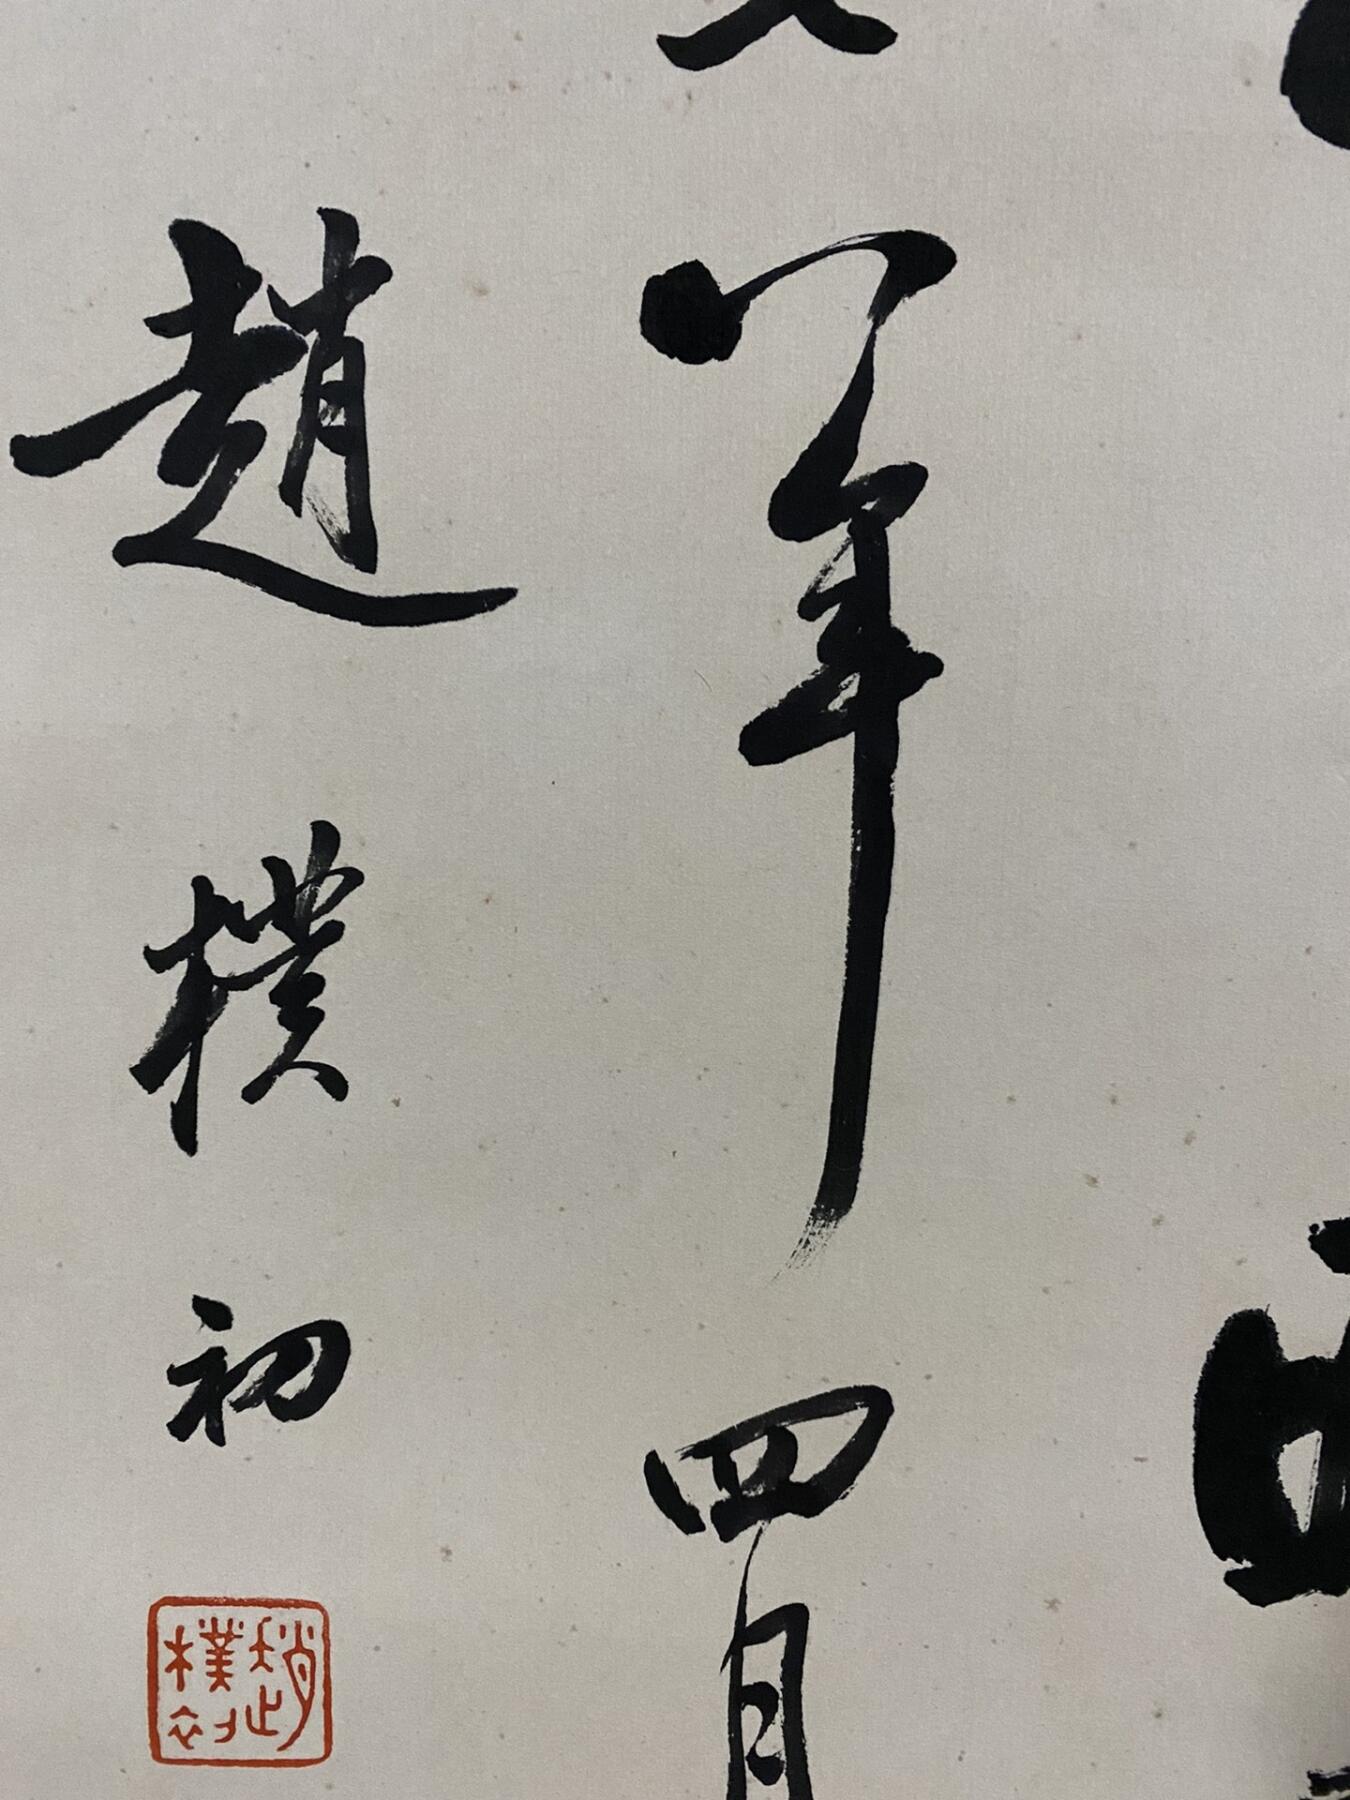 八年四月
趙樸初
趙樸初